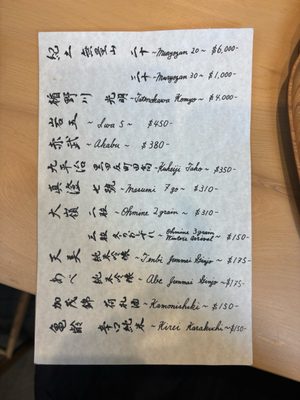 紀土 無量山 二十 ~ Muryozan 20 ~ $6,000-
三十 ~ Muryozan 30 ~ $1,000-
楯野川 光明 ~ Tatenokawa Komyo ~ $4,000-
岩五 ~ Iwa 5 ~ $450-
赤武 ~ Akabu ~ $380-
九平治 黒田庄町田高 ~ Kuheiji Tako ~ $350-
真澄 七號 ~ Masumi 7go ~ $310-
大嶺 二粒 ~ Ohmine 2 grain ~ $310-
三粒 冬のおとずれ ~ Ohmine 3 grain Winter ~ $150-
天美 純米吟醸 ~ Tenbi Junmai Ginjo ~ $175-
あべ 純米吟醸 ~ Abe Junmai Ginjo ~ $175-
加茂錦 荷札酒 ~ Kamonishiki ~ $150-
亀齢 辛口純米 ~ Kirei Karakuchi ~ $150-